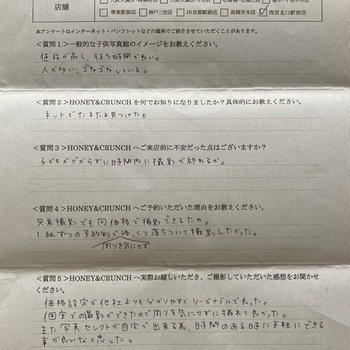 店舗
□神戸三宮店
□JR京都駅前店
□高槻茨木店
☑西宮北口駅前店
本アンケートはインターネット・パンフレットなどの媒体でご紹介させていただきます。
<質問1>一般的な子供写真館のイメージをお教えください。
値段が高く、待ち時間が長い。
人が多い、ゴチャゴチャしている。
<質問2>HONEY&CRUNCHを何でお知りになりましたか?具体的にお教えください。
ネットでたまたま見つけた。
<質問3>HONEY&CRUNCHへご来店前に不安だった点はございますか?
子どもがグズらずに時間内に撮影が終わるか。
<質問4>HONEY&CRUNCHへご予約いただいた理由をお教えください。
兄弟撮影でも同価格で撮影できるため。
1組ずつの予約制でゆっくり落ちついて撮影したかった。
周りを気にせず
<質問5>HONEY&CRUNCHへ実際お越しいただき、ご撮影していただいた感想をお聞かせ
ください。
価格設定が他社よりも分かりやすくリーズナブルで良った。
個室での撮影ができたので周り気にせずに撮れて良かった。
また写真セレクトが自宅で出来る為、時間のある時に手軽にできる
事が良いなと思った。